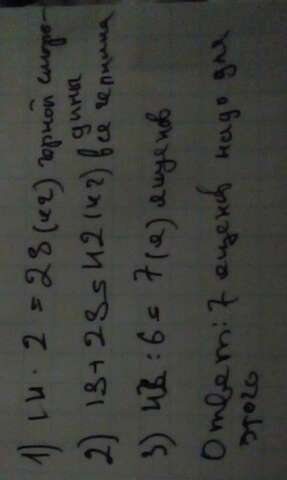 1) 14 · 2 = 28 (кг) чорной сморо-
дины
2) 13 + 28 = 42 (кг) все
3) 42 : 6 = 7 (я) ящеков
Ответ: 7 ящеков надо для
этого